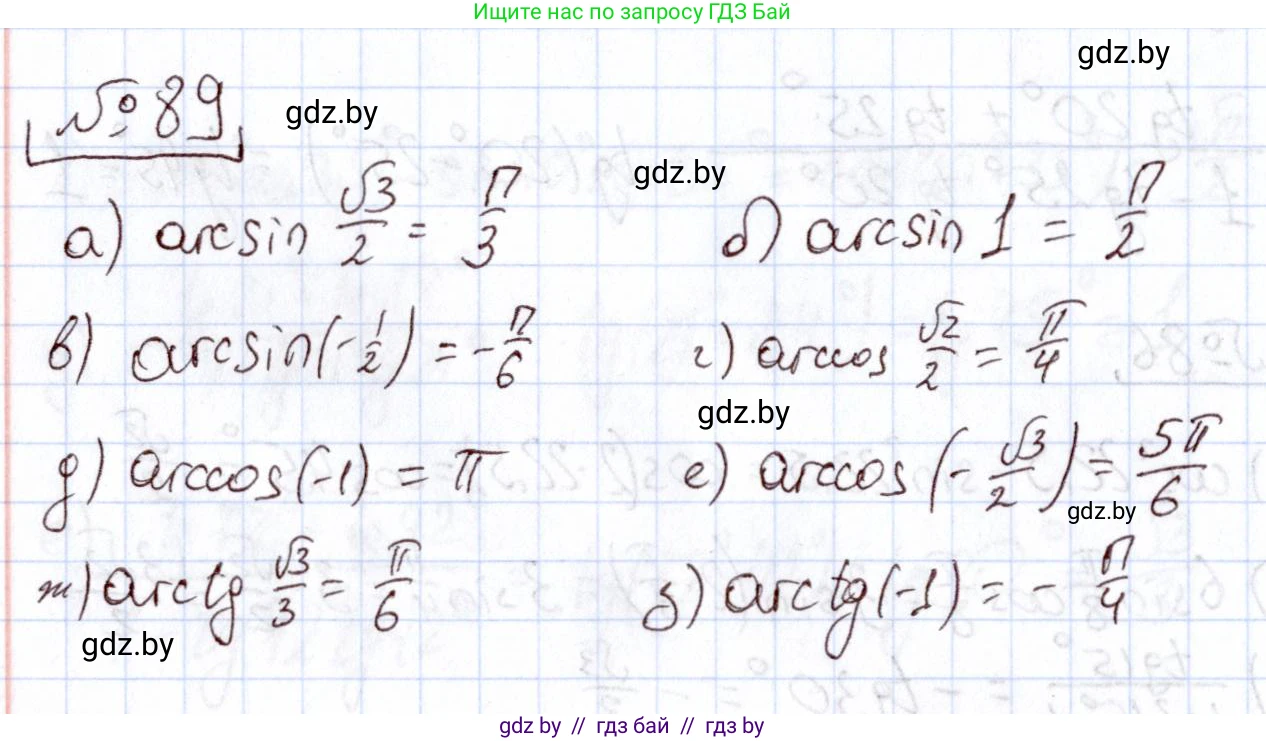 Ищите нас по запросу ГДЗ Бай
gdz.by
№ 89
gdz.by
gdz.by
а) arcsin √3/2 = π/3
б) arcsin 1 = π/2
в) arcsin(-1/2) = -π/6
г) arccos √2/2 = π/4
gdz.by
д) arccos(-1) = π
е) arccos(-√3/2) = 5π/6
gdz.by
ж) arctg √3/3 = π/6
з) arctg(-1) = -π/4
gdz.by
gdz.by // гдз бай // гдз by